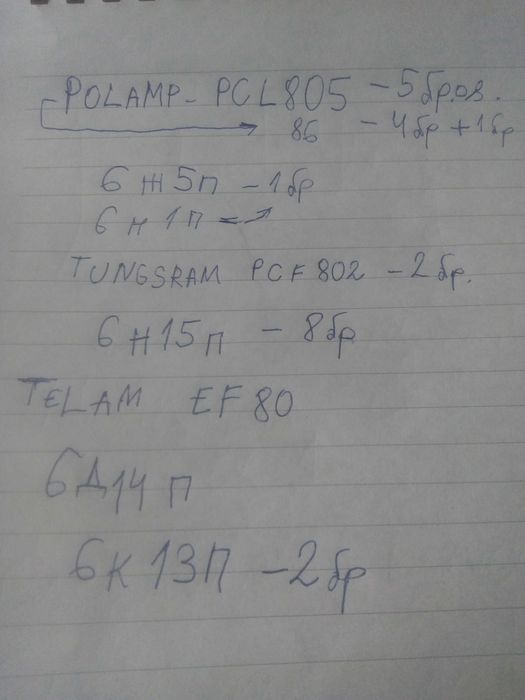 POLAMP - PCL805 - 5 броя.
86 - 4 бр + 1 бр
6Ж5П - 1 бр
6Н1П =
TUNGSRAM PCF 802 - 2 бр.
6Н15П - 8 бр
TELAM EF 80
6Д14П
6К13П - 2 бр